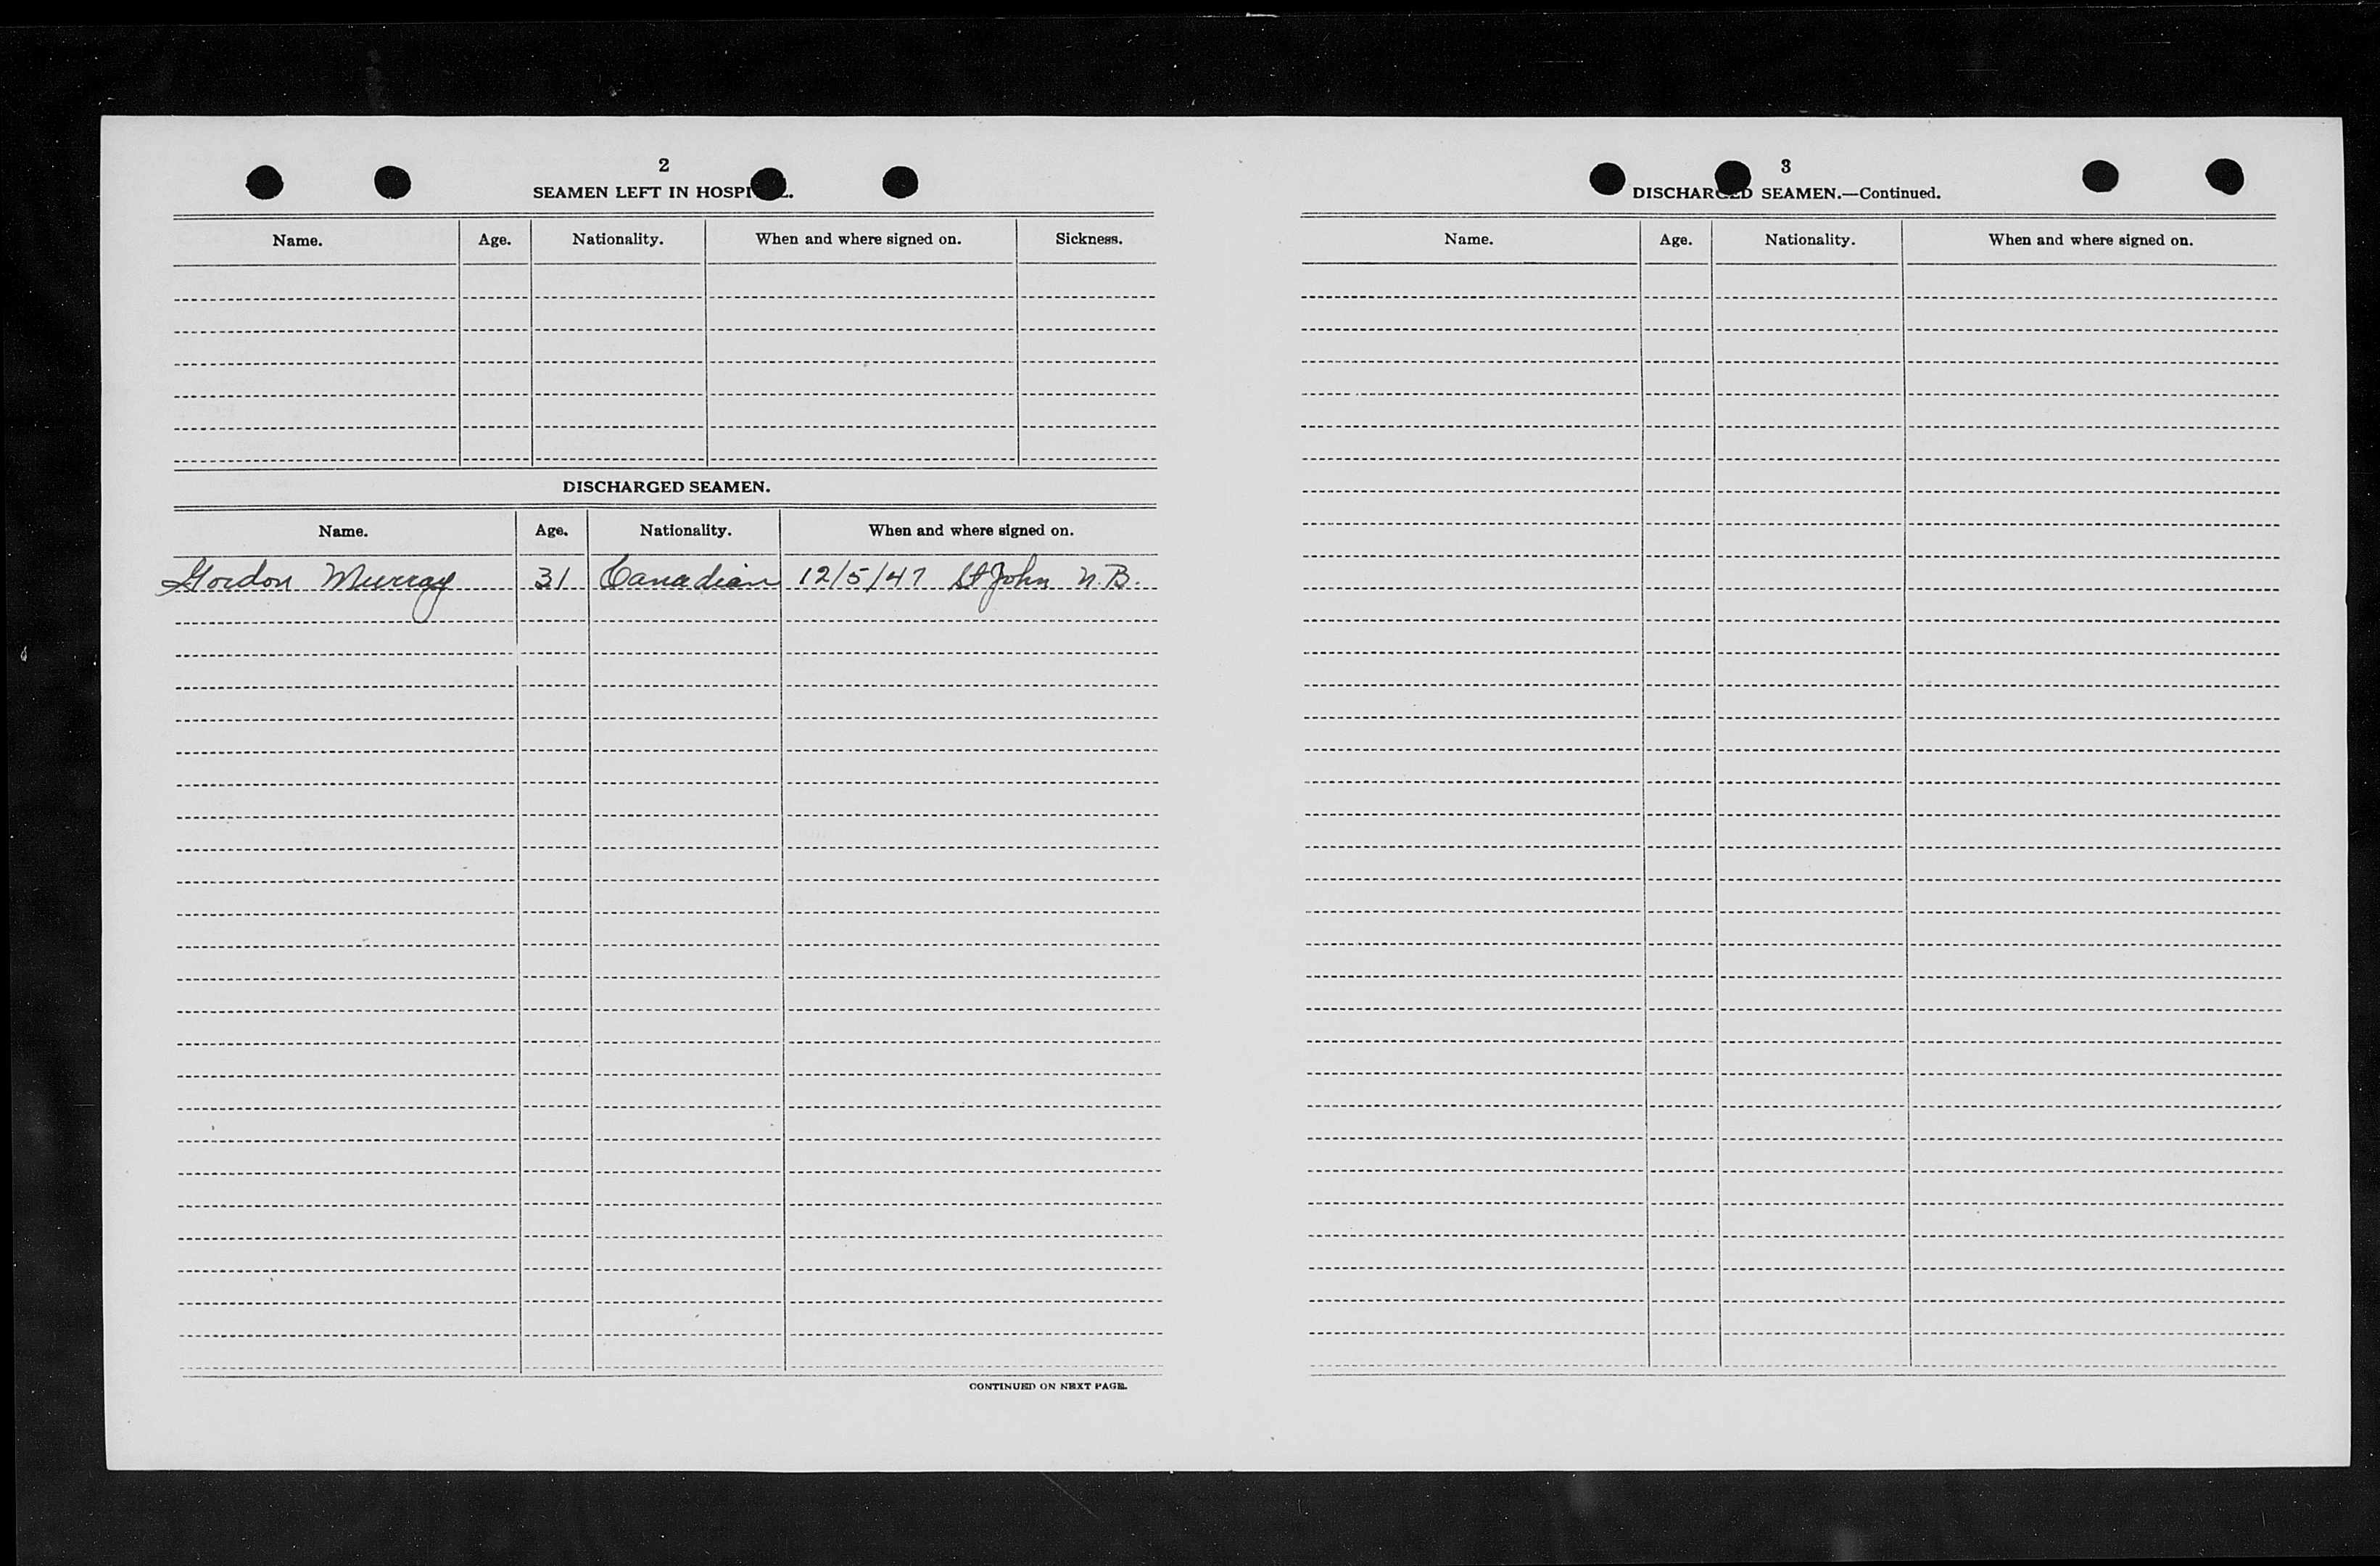 2
SEAMEN LEFT IN HOSPI
Name. Age. Nationality. When and where signed on. Sickness.
DISCHARGED SEAMEN.
Name. Age. Nationality. When and where signed on.
Gordon Murray 31 Canadian 12/5/47 St John N.B.
CONTINUED ON NEXT PAGE.
3
DISCHARGED SEAMEN.—Continued.
Name. Age. Nationality. When and where signed on.